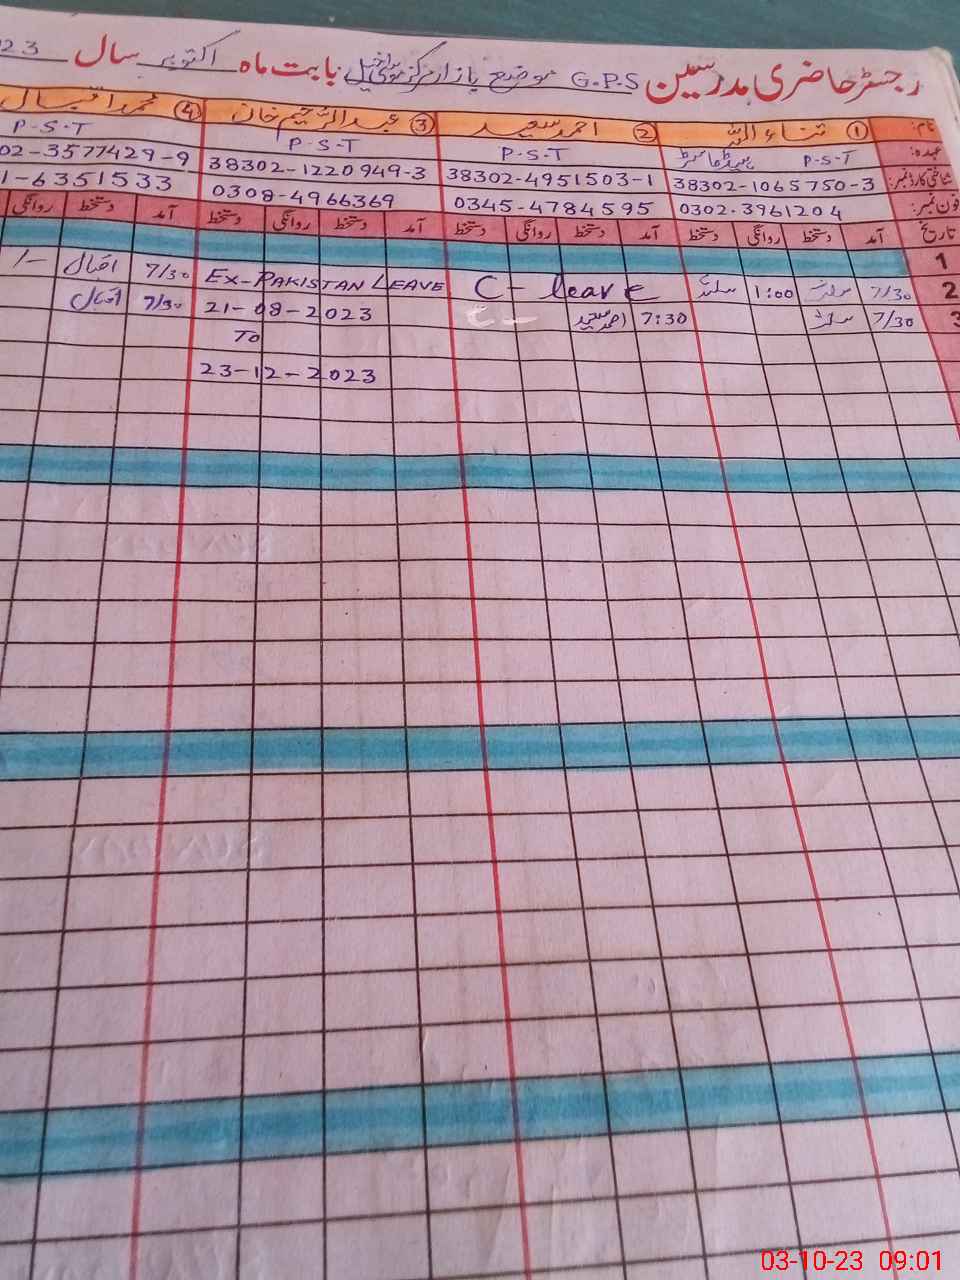 رجسٹر حاضری مدرسین G.P.S موضع بازار مرکز موسیٰ خیل بابت ماہ اکتوبر سال 23
نام: ① ثناء اللہ ② احمد سعید ③ عبدالرحیم خان ④ محمد اقبال
عہدہ: P-S-T ہیڈ ماسٹر P-S-T P-S-T P-S-T
شناختی کارڈ نمبر: 38302-1065750-3 38302-4951503-1 38302-1220949-3 02-3577429-9
فون نمبر: 0302-3961204 0345-4784595 0308-4966369 1-6351533
تاریخ آمد دستخط روانگی دستخط آمد دستخط روانگی دستخط آمد دستخط روانگی دستخط آمد دستخط روانگی
1
2 7/30 1:00 C-leave EX-PAKISTAN LEAVE 7/30 اقبال 1/-
3 7/30 7:30 احمد سعید C- 21-08-2023 7/30 اقبال
To
23-12-2023
SUNDAY
SUNDAY
03-10-23 09:01